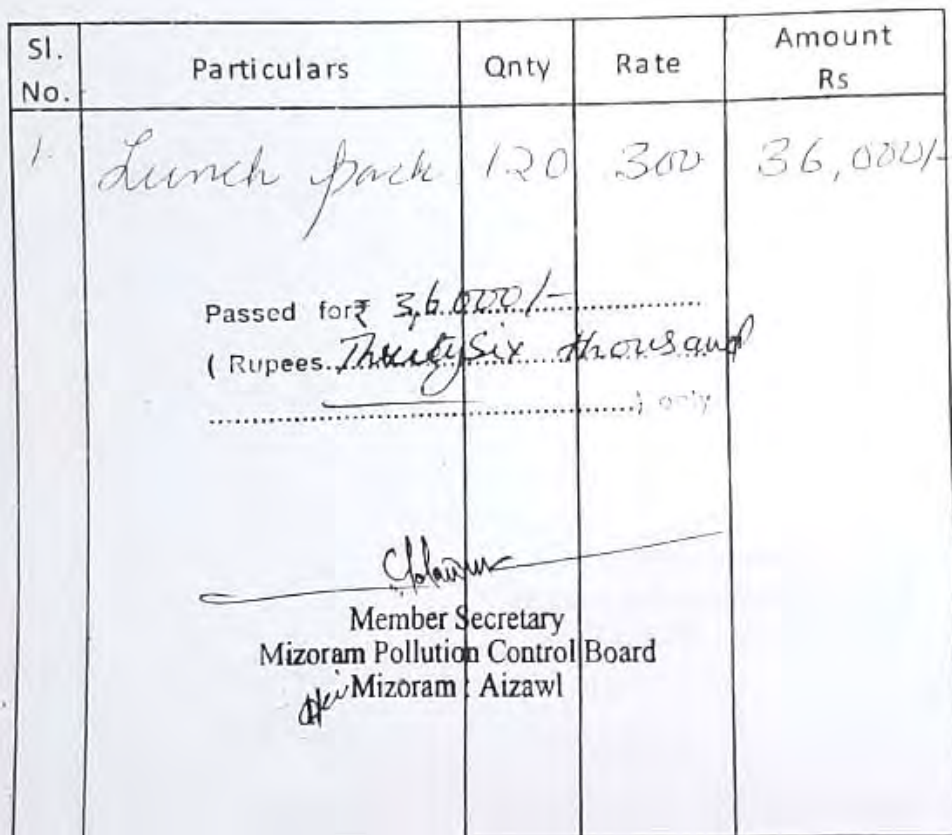 Sl. No. Particulars Qnty Rate Amount Rs
1. Lunch pack 120 300 36,000/-
Passed for ₹ 36,000/-
( Rupees Thirty Six thousand
) only
Member Secretary
Mizoram Pollution Control Board
Mizoram : Aizawl